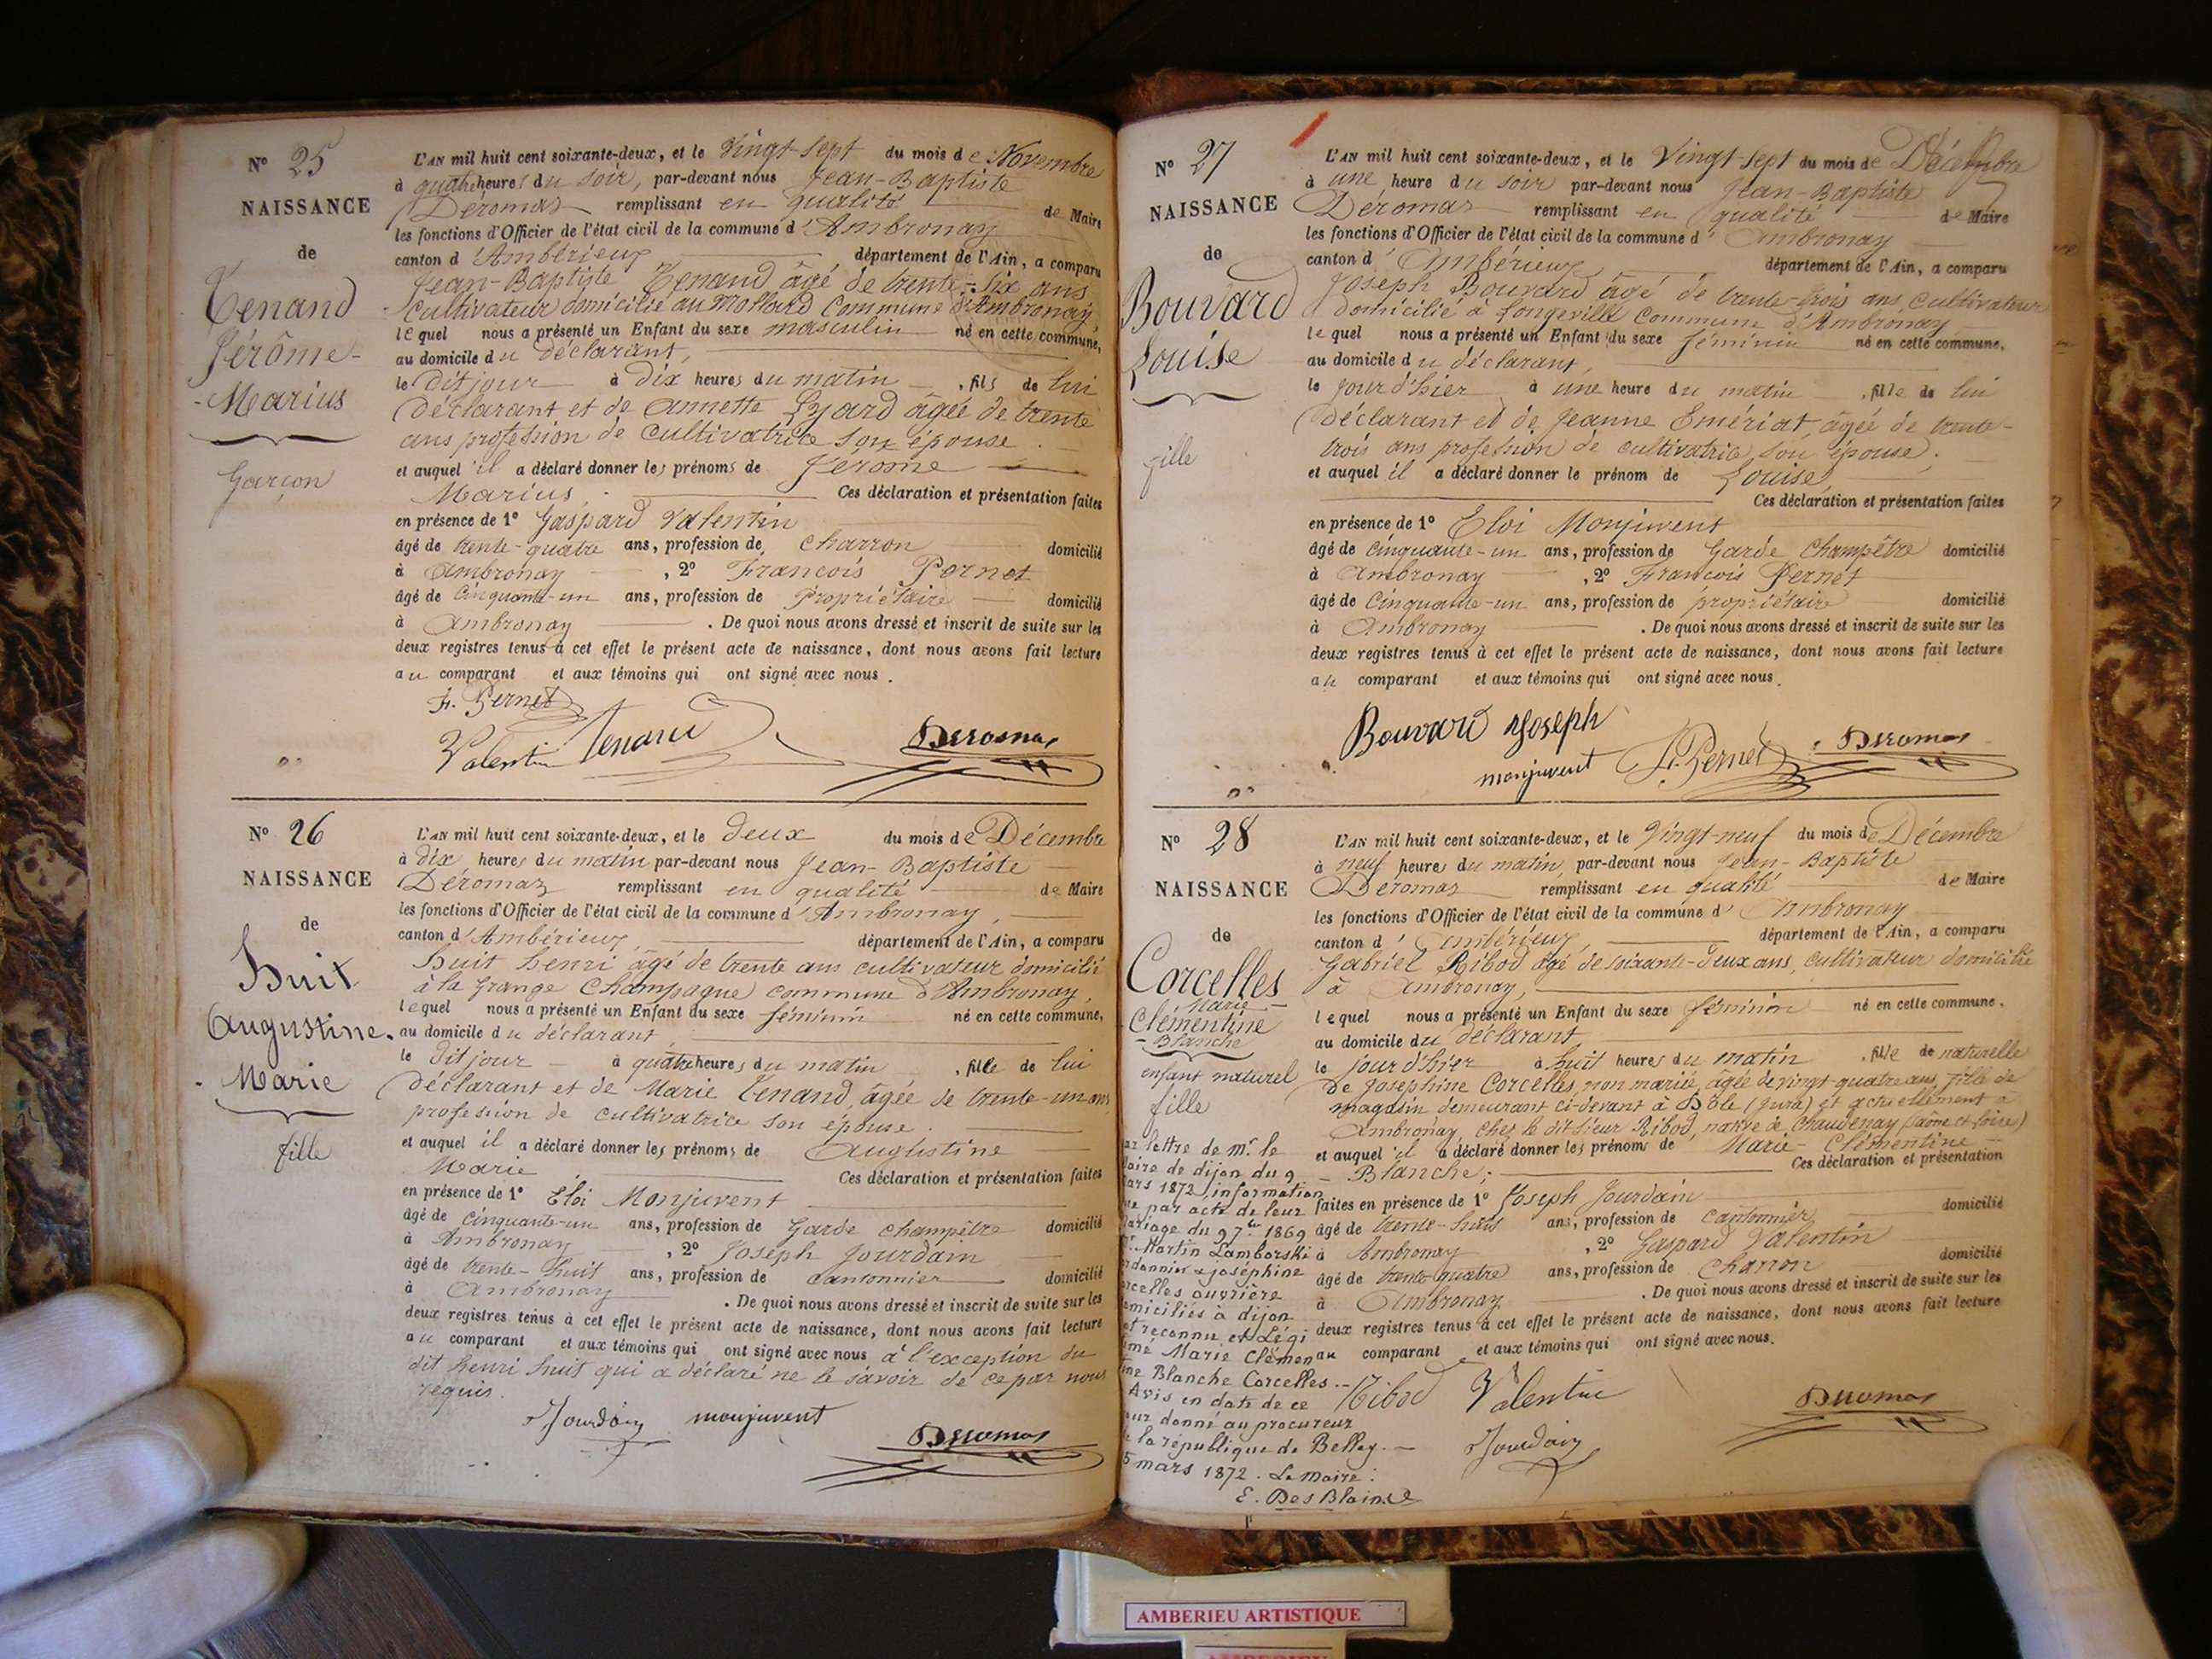 N° 25
NAISSANCE
de
Tenand
Jérôme-
-Marius
Garçon
L'AN mil huit cent soixante-deux, et le Vingt-Sept du mois de Novembre
à quatre heures du soir, par-devant nous Jean-Baptiste
Déromas remplissant en qualité de Maire
les fonctions d'Officier de l'état civil de la commune d'Ambronay
canton d'Ambérieux département de l'Ain, a comparu
Jean-Baptiste Tenand âgé de trente-six ans
cultivateur domicilié au Mollard Commune d'Ambronay,
lequel nous a présenté un Enfant du sexe masculin né en cette commune,
au domicile du déclarant,
le dit jour à dix heures du matin, fils de lui
déclarant et de Annette âgée de trente
ans profession de cultivatrice son épouse.
et auquel il a déclaré donner les prénoms de Jérome
Marius. Ces déclaration et présentation faites
en présence de 1° Gaspard Valentin
âgé de trente-quatre ans, profession de charron domicilié
à Ambronay, 2° François Pernet
âgé de Cinquante-un ans, profession de Propriétaire domicilié
à Ambronay. De quoi nous avons dressé et inscrit de suite sur les
deux registres tenus à cet effet le présent acte de naissance, dont nous avons fait lecture
au comparant et aux témoins qui ont signé avec nous.
F. Pernet
Valentin Tenand Deromas
N° 26
NAISSANCE
de
Huit
Augustine.
- Marie
fille
L'AN mil huit cent soixante-deux, et le deux du mois de Décembre
à dix heures du matin par-devant nous Jean-Baptiste
Déromas remplissant en qualité de Maire
les fonctions d'Officier de l'état civil de la commune d'Ambronay,
canton d'Ambérieux département de l'Ain, a comparu
Huit henri âgé de trente ans cultivateur domicilié
à la grange Champagne commune d'Ambronay,
lequel nous a présenté un Enfant du sexe féminin né en cette commune,
au domicile du déclarant
le dit jour à quatre heures du matin, fille de lui
déclarant et de Marie Tenand, âgée de trente-un ans
profession de cultivatrice son épouse.
et auquel il a déclaré donner les prénoms de Augustine
Marie Ces déclaration et présentation faites
en présence de 1° Eloi Monjuvent
âgé de cinquante-un ans, profession de Garde champêtre domicilié
à Ambronay, 2° Joseph Jourdain
âgé de trente-huit ans, profession de cantonnier domicilié
à Ambronay. De quoi nous avons dressé et inscrit de suite sur les
deux registres tenus à cet effet le présent acte de naissance, dont nous avons fait lecture
au comparant et aux témoins qui ont signé avec nous à l'exception du
dit henri huit qui a déclaré ne le savoir de ce par nous
requis.
Jourdain monjuvent
Deromas
N° 27
NAISSANCE
de
Bouvard
Louise
fille
L'AN mil huit cent soixante-deux, et le Vingt-sept du mois de Décembre
à une heure du soir par-devant nous Jean-Baptiste
Déromas remplissant en qualité de Maire
les fonctions d'Officier de l'état civil de la commune d'Ambronay
canton d'Ambérieux département de l'Ain, a comparu
Joseph Bouvard âgé de trente-trois ans, cultivateur
domicilié à Longeville commune d'Ambronay
lequel nous a présenté un Enfant du sexe féminin né en cette commune,
au domicile du déclarant,
le jour d'hier à une heure du matin, fille de lui
déclarant et de Jeanne Emériat, âgée de trente-
trois ans profession de cultivatrice son épouse.
et auquel il a déclaré donner le prénom de Louise,
Ces déclaration et présentation faites
en présence de 1° Eloi Monjuvent
âgé de cinquante-un ans, profession de Garde Champêtre domicilié
à Ambronay, 2° François Pernet
âgé de Cinquante-un ans, profession de propriétaire domicilié
à Ambronay. De quoi nous avons dressé et inscrit de suite sur les
deux registres tenus à cet effet le présent acte de naissance, dont nous avons fait lecture
au comparant et aux témoins qui ont signé avec nous.
Bouvard Joseph
monjuvent F. Pernet Deromas
N° 28
NAISSANCE
de
Corcelles
Marie-
Clémentine
-Blanche
enfant naturel
fille
ar lettre de mr. le
aire de dijon du 9
ars 1872, information
ue par acte de leur
ariage du 9 7bre 1869
r. Martin Lamborski
rdonnier & joséphine
orcelles ouvrière
omiciliés à dijon
nt reconnu et Légi
imé Marie Clémen
tine Blanche Corcelles.-
Avis en date de ce
our donné au procureur
e la république de Belley.-
5 mars 1872. Le maire:
E. DesBlains
L'AN mil huit cent soixante-deux, et le Vingt-neuf du mois de Décembre
à neuf heures du matin, par-devant nous Jean-Baptiste
Déromas remplissant en qualité de Maire
les fonctions d'Officier de l'état civil de la commune d'Ambronay
canton d'Ambérieux département de l'Ain, a comparu
Gabriel Ribod âgé de soixante-deux ans, cultivateur domicilié
à Ambronay,
lequel nous a présenté un Enfant du sexe féminin né en cette commune,
au domicile du déclarant
le jour d'hier à huit heures du matin, fille de naturelle
de Joséphine Corcelles, non mariée, âgée de vingt-quatre ans, fille de
magasin demeurant ci-devant à Dôle (Jura) et actuellement à
Ambronay, chez le dit sieur Ribod, native de Chaudenay (Saône et Loire)
et auquel il a déclaré donner les prénoms de Marie-Clémentine-
Blanche; Ces déclaration et présentation
faites en présence de 1° Joseph Jourdain domicilié
âgé de trente-huit ans, profession de cantonnier
à Ambronay, 2° Gaspard Valentin
âgé de trente-quatre ans, profession de Charron domicilié
à Ambronay. De quoi nous avons dressé et inscrit de suite sur les
deux registres tenus à cet effet le présent acte de naissance, dont nous avons fait lecture
au comparant et aux témoins qui ont signé avec nous.
Ribod Valentin Deromas
Jourdain
AMBERIEU ARTISTIQUE
AMBERIEU